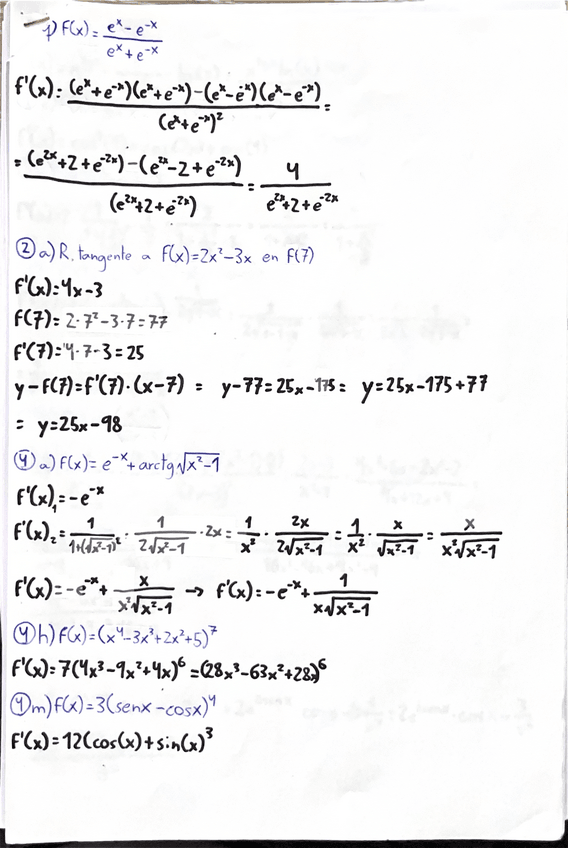 1) f(x) = (e^x - e^-x)/(e^x + e^-x)
f'(x): ((e^x + e^-x)(e^x + e^-x) - (e^x - e^-x)(e^x - e^-x))/(e^x + e^-x)² =
= ((e^2x + 2 + e^-2x) - (e^2x - 2 + e^-2x))/(e^2x + 2 + e^-2x) = 4/(e^2x + 2 + e^-2x)
② a) R. tangente a f(x) = 2x² - 3x en f(7)
f'(x) = 4x - 3
f(7) = 2·7² - 3·7 = 77
f'(7) = 4·7 - 3 = 25
y - f(7) = f'(7)·(x - 7) = y - 77 = 25x - 175 = y = 25x - 175 + 77
= y = 25x - 98
④ a) f(x) = e^-x + arctg √(x² - 1)
f'(x)₁ = -e^-x
f'(x)₂ = 1/(1 + (√(x² - 1))²) · 1/(2√(x² - 1)) · 2x = 1/x² · 2x/(2√(x² - 1)) = 1/x² · x/√(x² - 1) = x/(x²√(x² - 1))
f'(x) = -e^-x + x/(x²√(x² - 1)) → f'(x) = -e^-x + 1/(x√(x² - 1))
④ h) f(x) = (x⁴ - 3x³ + 2x² + 5)⁷
f'(x) = 7(4x³ - 9x² + 4x)⁶ = (28x³ - 63x² + 28x)⁶
④ m) f(x) = 3(senx - cosx)⁴
f'(x) = 12(cos(x) + sin(x)³